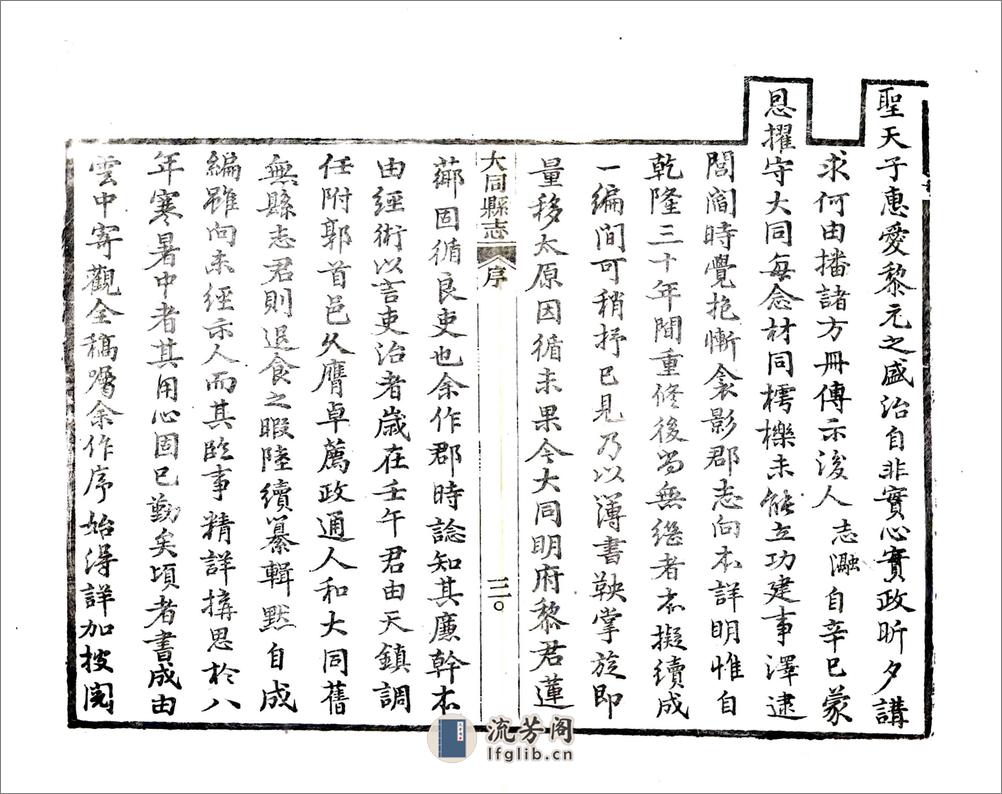 聖天子惠愛黎元之盛治自非實心實政昕夕講
求何由播諸方冊傳示後人志瀜自辛巳蒙
恩擢守大同每念材同樗櫟未能立功建事澤逮
閭閻時覺抱慚衾影郡志向本詳明惟自
乾隆三十年間重修後尚無繼者亦擬續成
一編間可稍抒已見乃以簿書鞅掌旋即
量移太原因循未果今大同明府黎君蓮
大同縣志 序 三〇
薌固循良吏也余作郡時諗知其廉幹本
由經術以言吏治者歲在壬午君由天鎮調
任附郭首邑久膺卓薦政通人和大同舊
無縣志君則退食之暇陸續纂輯默自成
編雖向未經示人而其臨事精詳搆思於八
年寒暑中者其用心固已勤矣頃者書成由
雲中寄觀全稿囑余作序始得詳加披閱
流芳阁
lfglib.cn